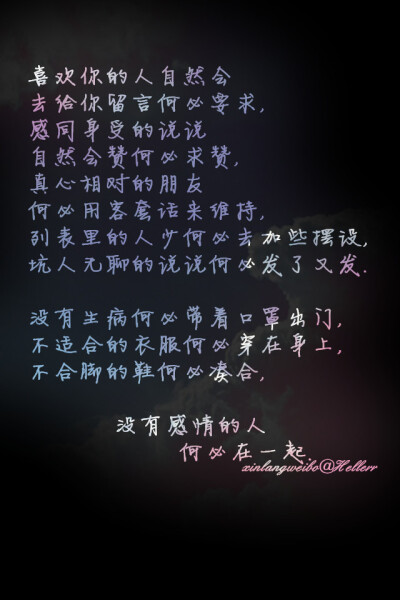 喜欢你的人自然会
去给你留言何必要求,
感同身受的说说
自然会赞何必求赞,
真心相对的朋友
何必用客套话来维持,
列表里的人少何必去加些摆设,
坑人无聊的说说何必发了又发.
没有生病何必带着口罩出门,
不适合的衣服何必穿在身上,
不合脚的鞋何必凑合,
没有感情的人
何必在一起.
xinlangweibo@Hellerr